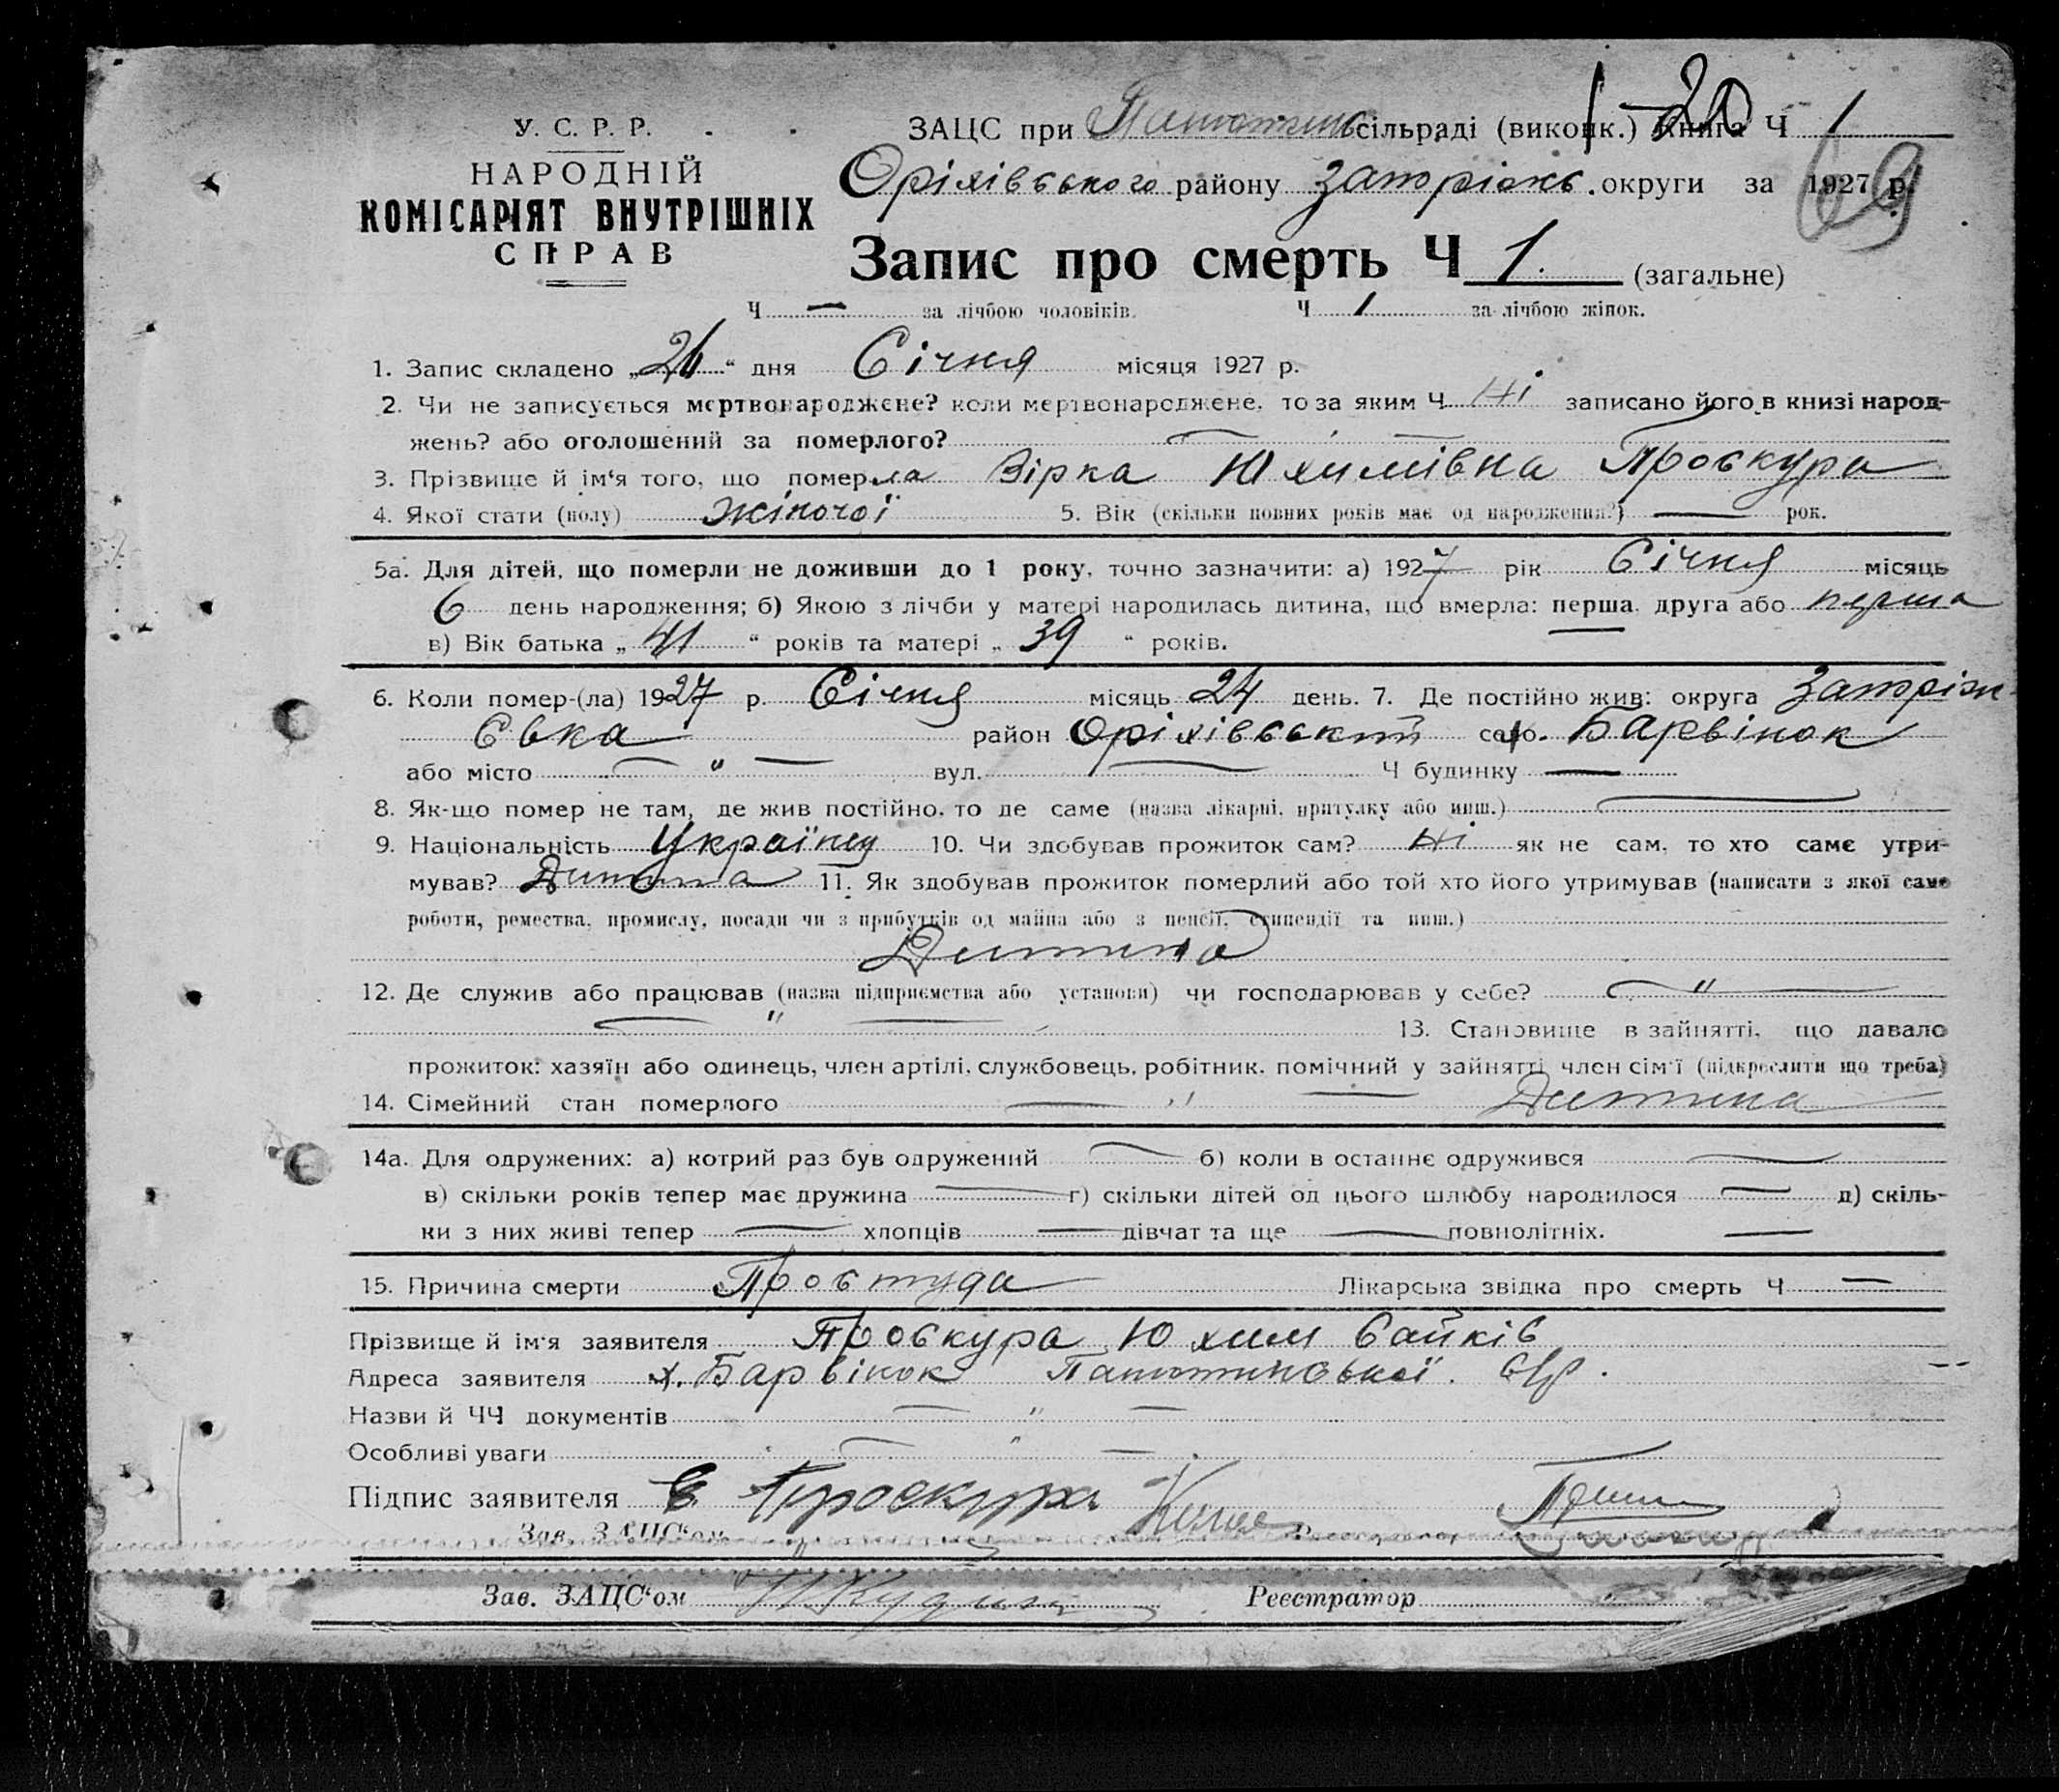 1-20
У. С. Р. Р.
ЗАЦС при сільраді (виконк.) Книга Ч 1
НАРОДНІЙ
Оріхівського району Запоріжс. округи за 1927 р.
69
КОМІСАРІЯТ ВНУТРІШНІХ
СПРАВ
Запис про смерть Ч 1. (загальне)
Ч — за лічбою чоловіків. Ч 1 за лічбою жінок.
1. Запис складено „26“ дня Січня місяця 1927 р.
2. Чи не записується мертвонароджене? коли мертвонароджене, то за яким Ч ні записано його в книзі народ-
жень? або оголошений за померлого? — —
3. Прізвище й ім'я того, що померла Вірка Юхимівна Проскура
4. Якої стати (полу) жіночої 5. Вік (скільки повних років має од народження?) — рок.
5а. Для дітей, що померли не доживши до 1 року, точно зазначити: а) 1927 рік Січня місяць
6 день народження; б) Якою з лічби у матері народилась дитина, що вмерла: перша, друга або перша
в) Вік батька „41“ років та матері „39“ років.
6. Коли помер-(ла) 1927 р. Січня місяць 24 день. 7. Де постійно жив: округа Запоріж
ська район Оріхівський село х. Барвінок
або місто — " — вул. — Ч будинку —
8. Як-що помер не там, де жив постійно, то де саме (назва лікарні, притулку або инш.) —
9. Національність Українц 10. Чи здобував прожиток сам? ні як не сам, то хто саме утри-
мував? Дитина 11. Як здобував прожиток померлий або той хто його утримував (написати з якої саме
роботи, ремества, промислу, посади чи з прибутків од майна або з пенсії, стипендії та инш.)
Дитина
12. Де служив або працював (назва підприємства або установи) чи господарював у себе? — " —
— " — 13. Становище в зайнятті, що давало
прожиток: хазяїн або одинець, член артілі, службовець, робітник, помічний у зайнятті член сім'ї (підкреслити що треба)
14. Сімейний стан померлого — " — Дитина
14а. Для одружених: а) котрий раз був одружений — б) коли в останнє одружився —
в) скільки років тепер має дружина — г) скільки дітей од цього шлюбу народилося — д) скіль-
ки з них живі тепер — хлопців — дівчат та ще — повнолітніх. —
15. Причина смерти Простуда Лікарська звідка про смерть Ч —
Прізвище й ім'я заявителя Проскура Юхим
Адреса заявителя х. Барвінок
Назви й ЧЧ документів — " —
Особливі уваги — " —
Підпис заявителя Є Проскура
Зав. ЗАЦС'ом
Зав. ЗАЦС'ом Реєстратор